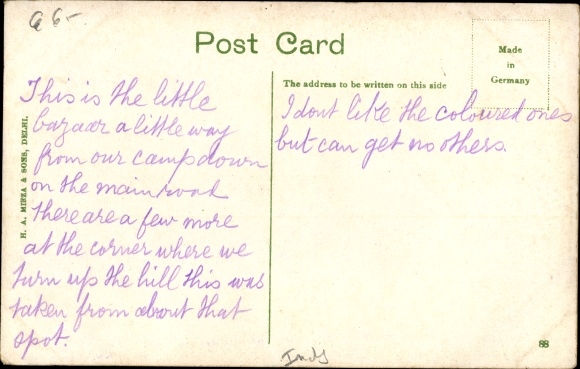 a 6-
Post Card
Made
in
Germany
The address to be written on this side
H. A. MIRZA & SONS, DELHI.
This is the little
bazaar a little way
from our camp down
on the main road
there are a few more
at the corner where we
turn up the hill this was
taken from about that
spot.
I dont like the coloured ones
but can get no others.
88